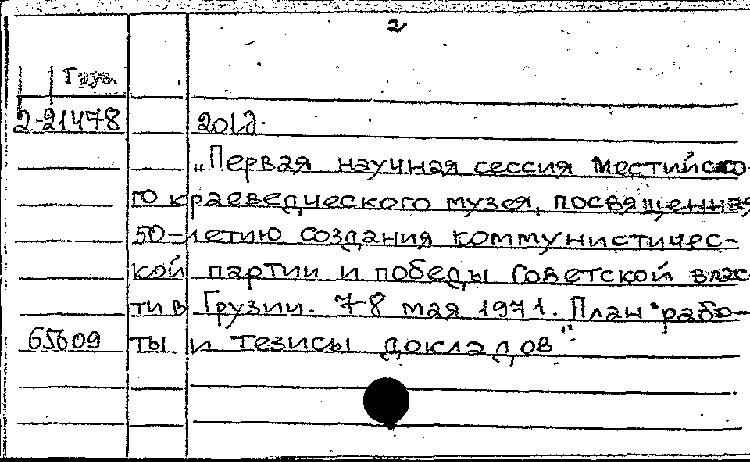 2
Груз.
2-21478
201д.
„Первая научная сессия Местийско-
го краеведческого музея, посвященная
50-летию создания коммунистичес-
кой партии и победы Советской влас
ти в Грузии. 7-8 мая 1971. План рабо-
65609 ты и тезисы докладов"